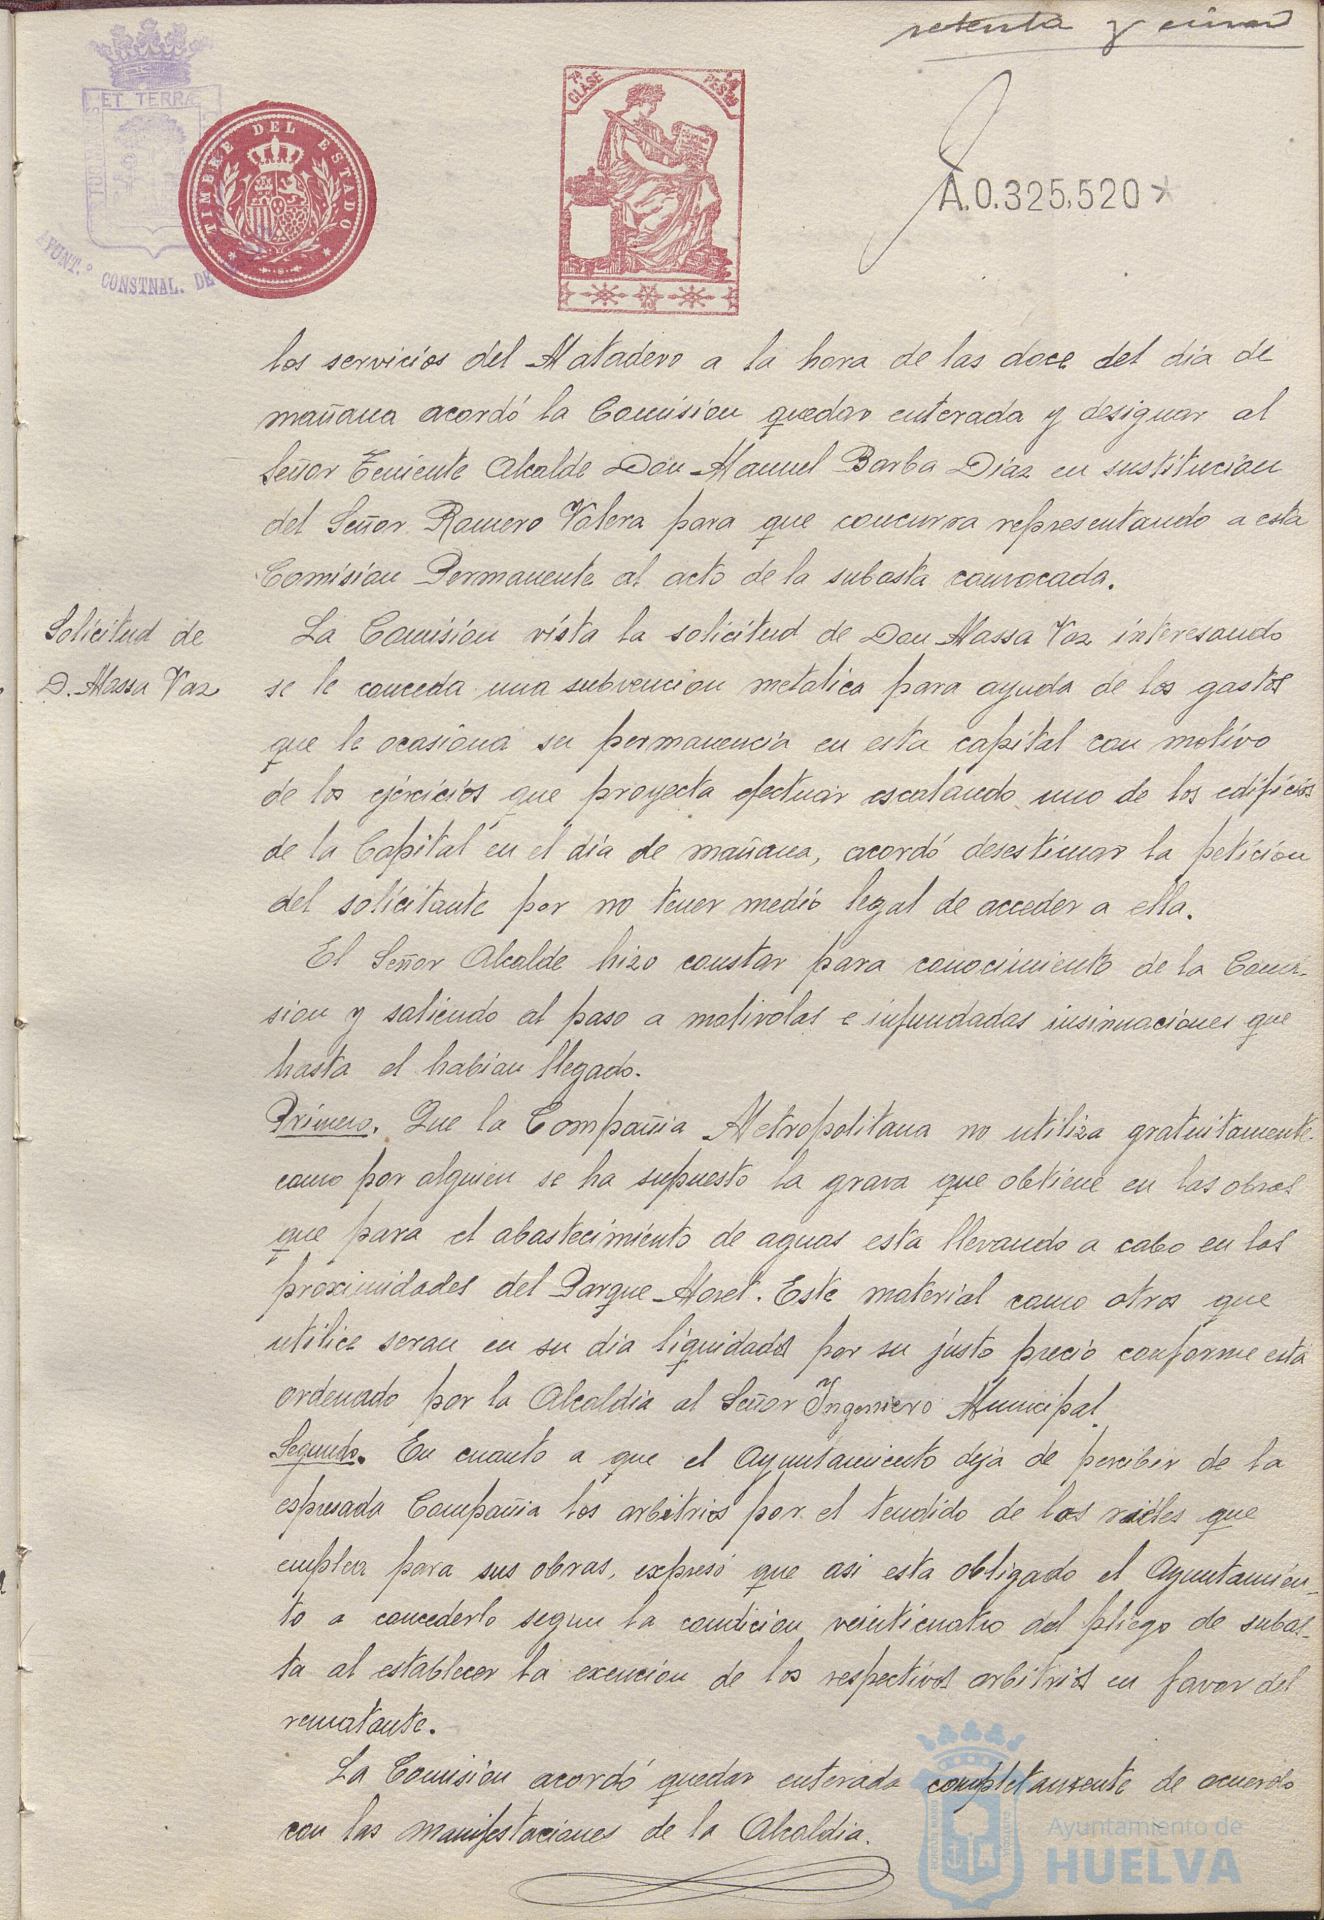 setenta y cinco
ET TERRÆ
AYUNT.º CONSTNAL. DE
TIMBRE DEL ESTADO
7ª CLASE
PESTAS
A.0.325,520
los servicios del Matadero a la hora de las doce del dia de
mañana acordó la Comision quedar enterada y designar al
Señor Teniente Alcalde Don Manuel Barba Diaz en sustitucion
del Señor Romero Valera para que concurra representando a esta
Comision Permanente al acto de la subasta convocada.
Solicitud de
D. Massa Vaz
La Comision vista la solicitud de Don Massa Vaz interesando
se le conceda una subvencion metalica para ayuda de los gastos
que le ocasiona su permanencia en esta capital con motivo
de los ejercicios que proyecta efectuar escalando uno de los edificios
de la Capital en el dia de mañana, acordó desestimar la peticion
del solicitante por no tener medio legal de acceder a ella.
El Señor Alcalde hizo constar para conocimiento de la Comi-
sion y saliendo al paso a malivolas e infundadas insinuaciones que
hasta el habian llegado.
Primero. Que la Compañia Metropolitana no utiliza gratuitamente
como por alguien se ha supuesto la grava que obtiene en las obras
que para el abastecimiento de aguas esta llevando a cabo en las
proximidades del Parque Moret. Este material como otros que
utilice seran en su dia liquidados por su justo precio conforme esta
ordenado por la Alcaldia al Señor Ingeniero Municipal.
Segundo. En cuanto a que el Ayuntamiento deja de percibir de la
espresada Compañia los arbitrios por el tendido de los raíles que
emplea para sus obras, expresó que asi esta obligado el Ayuntamien-
to a concederlo segun la condicion veinticuatro del pliego de subas-
ta al establecer la exencion de los respectivos arbitrios en favor del
rematante.
La Comision acordó quedar enterada completamente de acuerdo
con las manifestaciones de la Alcaldia.
Ayuntamiento de
HUELVA